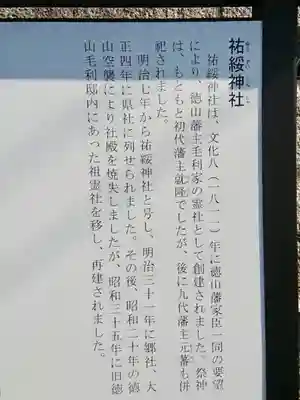 祐綏神社
ゆうすいじんじゃ
祐綏神社は、文化八(一八一一)年に徳山藩家臣一同の要望
により、徳山藩主毛利家の霊社として創建されました。祭神
は、もともと初代藩主就隆でしたが、後に九代藩主元蕃も併
祀されました。
明治七年から祐綏神社と号し、明治三十一年に郷社、大
正四年に県社に列せられました。その後、昭和二十年の徳
山空襲により社殿を焼失しましたが、昭和三十五年に旧徳
山毛利邸内にあった祖霊社を移し、再建されました。